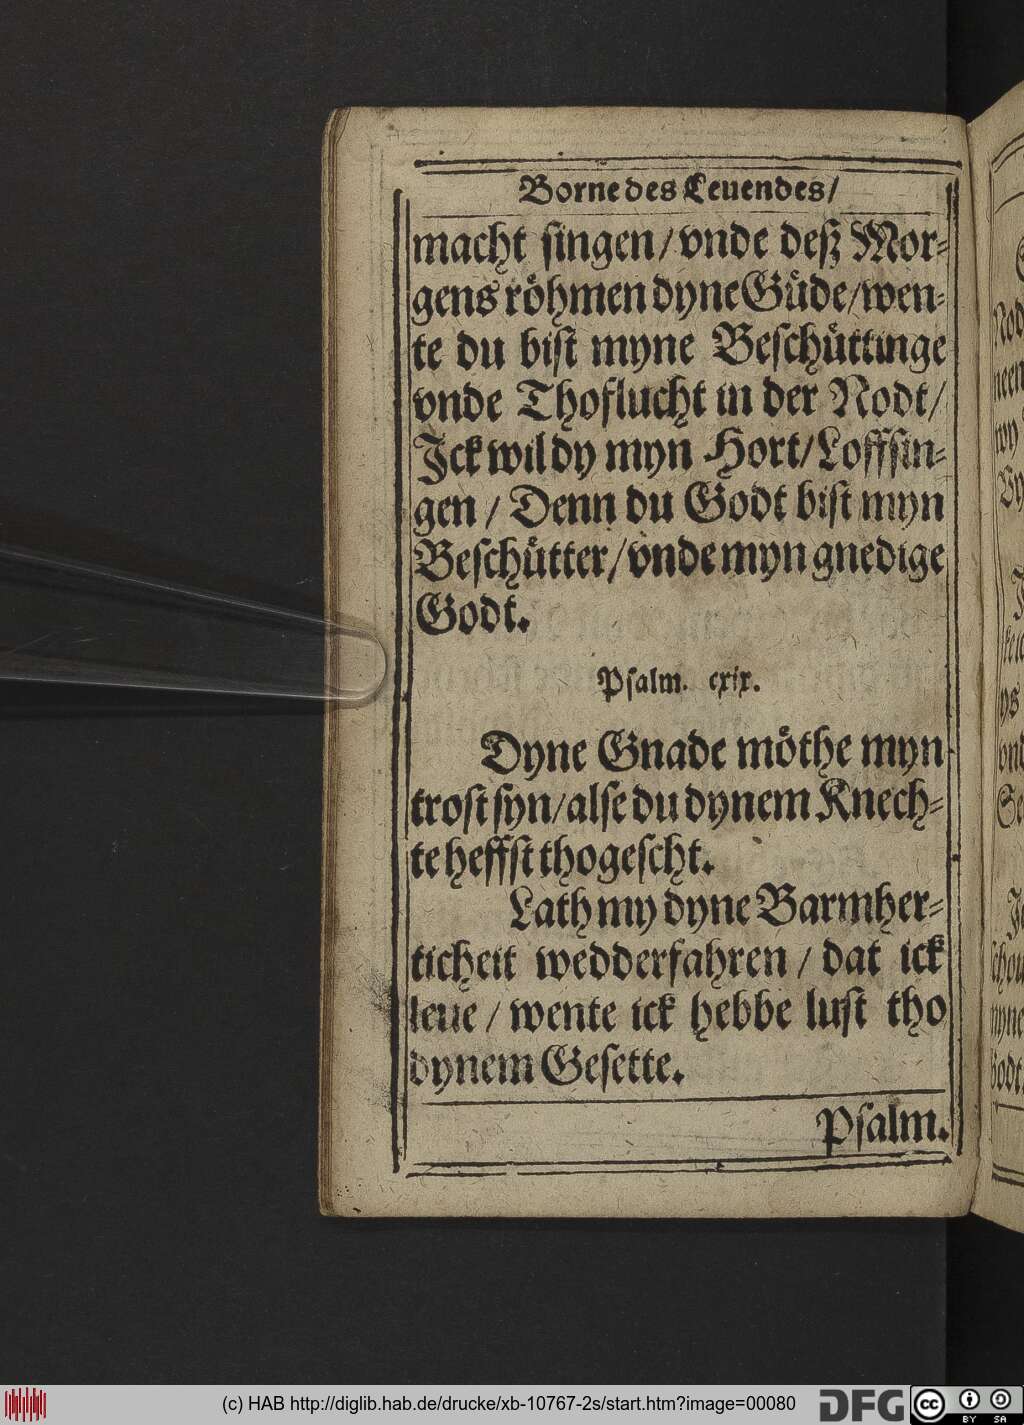 Borne des Leuendes/
macht singen/vnde deß Mor-
gens röhmen dyne Güde/wen-
te du bist myne Beschüttinge
vnde Thoflucht in der Nodt/
Ick wil dy myn Hort/Loffsin-
gen/Denn du Godt bist myn
Beschütter/vnde myn gnedige
Godt.
Psalm. cxix.
Dyne Gnade möthe myn
trost syn/alse du dynem Knech-
te heffst thogescht.
Lath my dyne Barmher-
ticheit wedderfahren/dat ick
leue/wente ick hebbe lust tho
dynem Gesette.
Psalm.
(c) HAB http://diglib.hab.de/drucke/xb-10767-2s/start.htm?image=00080
DFG
cc BY SA